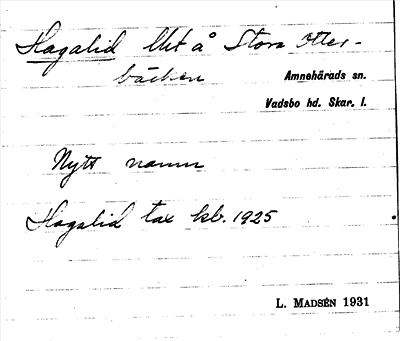 Hagalid lht å Stora Otter-
bäcken
Amnehärads sn.
Vadsbo hd. Skar. l.
Nytt namn
Hagalid tax kb. 1925
L. MADSÉN 1931